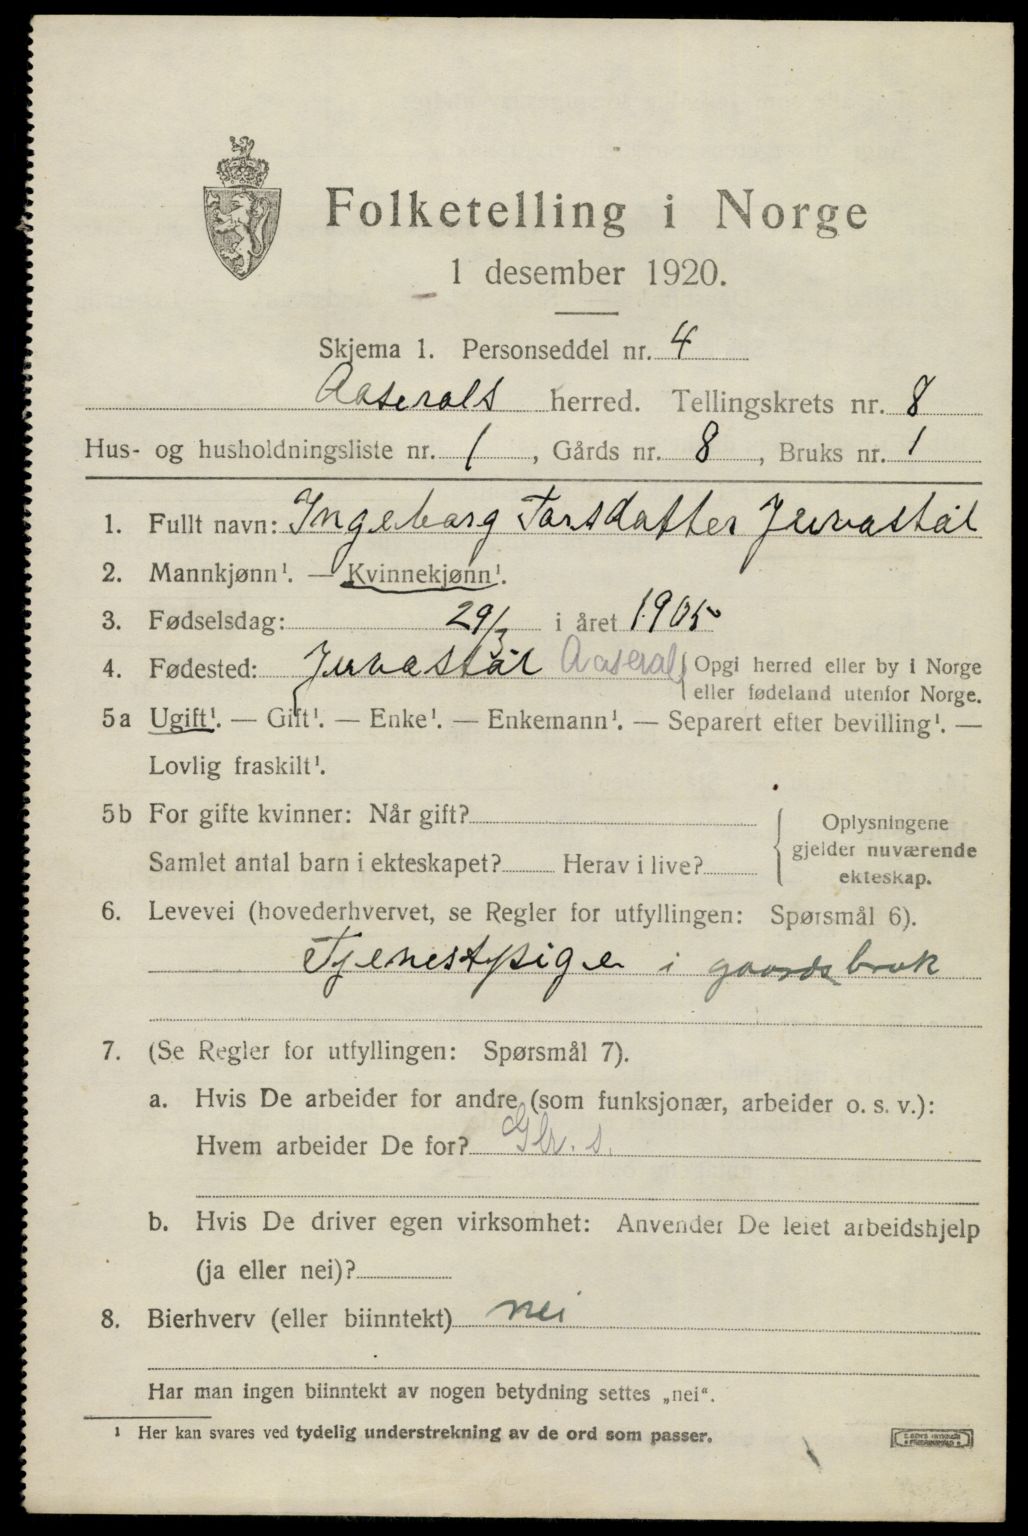 Folketelling i Norge
1 desember 1920.
Skjema 1. Personseddel nr. 4
Aaserals herred. Tellingskrets nr. 8
Hus- og husholdningsliste nr. 1, Gårds nr. 8, Bruks nr. 1
1. Fullt navn: Ingeborg Torsdatter Juvastøl
2. Mannkjønn¹. — Kvinnekjønn¹.
3. Fødselsdag: 29/3 i året 1905
4. Fødested: Juvastøl Aaseral {Opgi herred eller by i Norge
eller fødeland utenfor Norge.
5a Ugift¹. — Gift¹. — Enke¹. — Enkemann¹. — Separert efter bevilling¹. —
Lovlig fraskilt¹.
5b For gifte kvinner: Når gift?
Samlet antal barn i ekteskapet? Herav i live?
{ Oplysningene
gjelder nuværende
ekteskap.
6. Levevei (hovederhvervet, se Regler for utfyllingen: Spørsmål 6).
Tjenestpige i gaardsbruk
7. (Se Regler for utfyllingen: Spørsmål 7).
a. Hvis De arbeider for andre (som funksjonær, arbeider o. s. v.):
Hvem arbeider De for? Gbr. s.
b. Hvis De driver egen virksomhet: Anvender De leiet arbeidshjelp
(ja eller nei)?
8. Bierhverv (eller biinntekt) nei
Har man ingen biinntekt av nogen betydning settes „nei“.
¹ Her kan svares ved tydelig understrekning av de ord som passer.